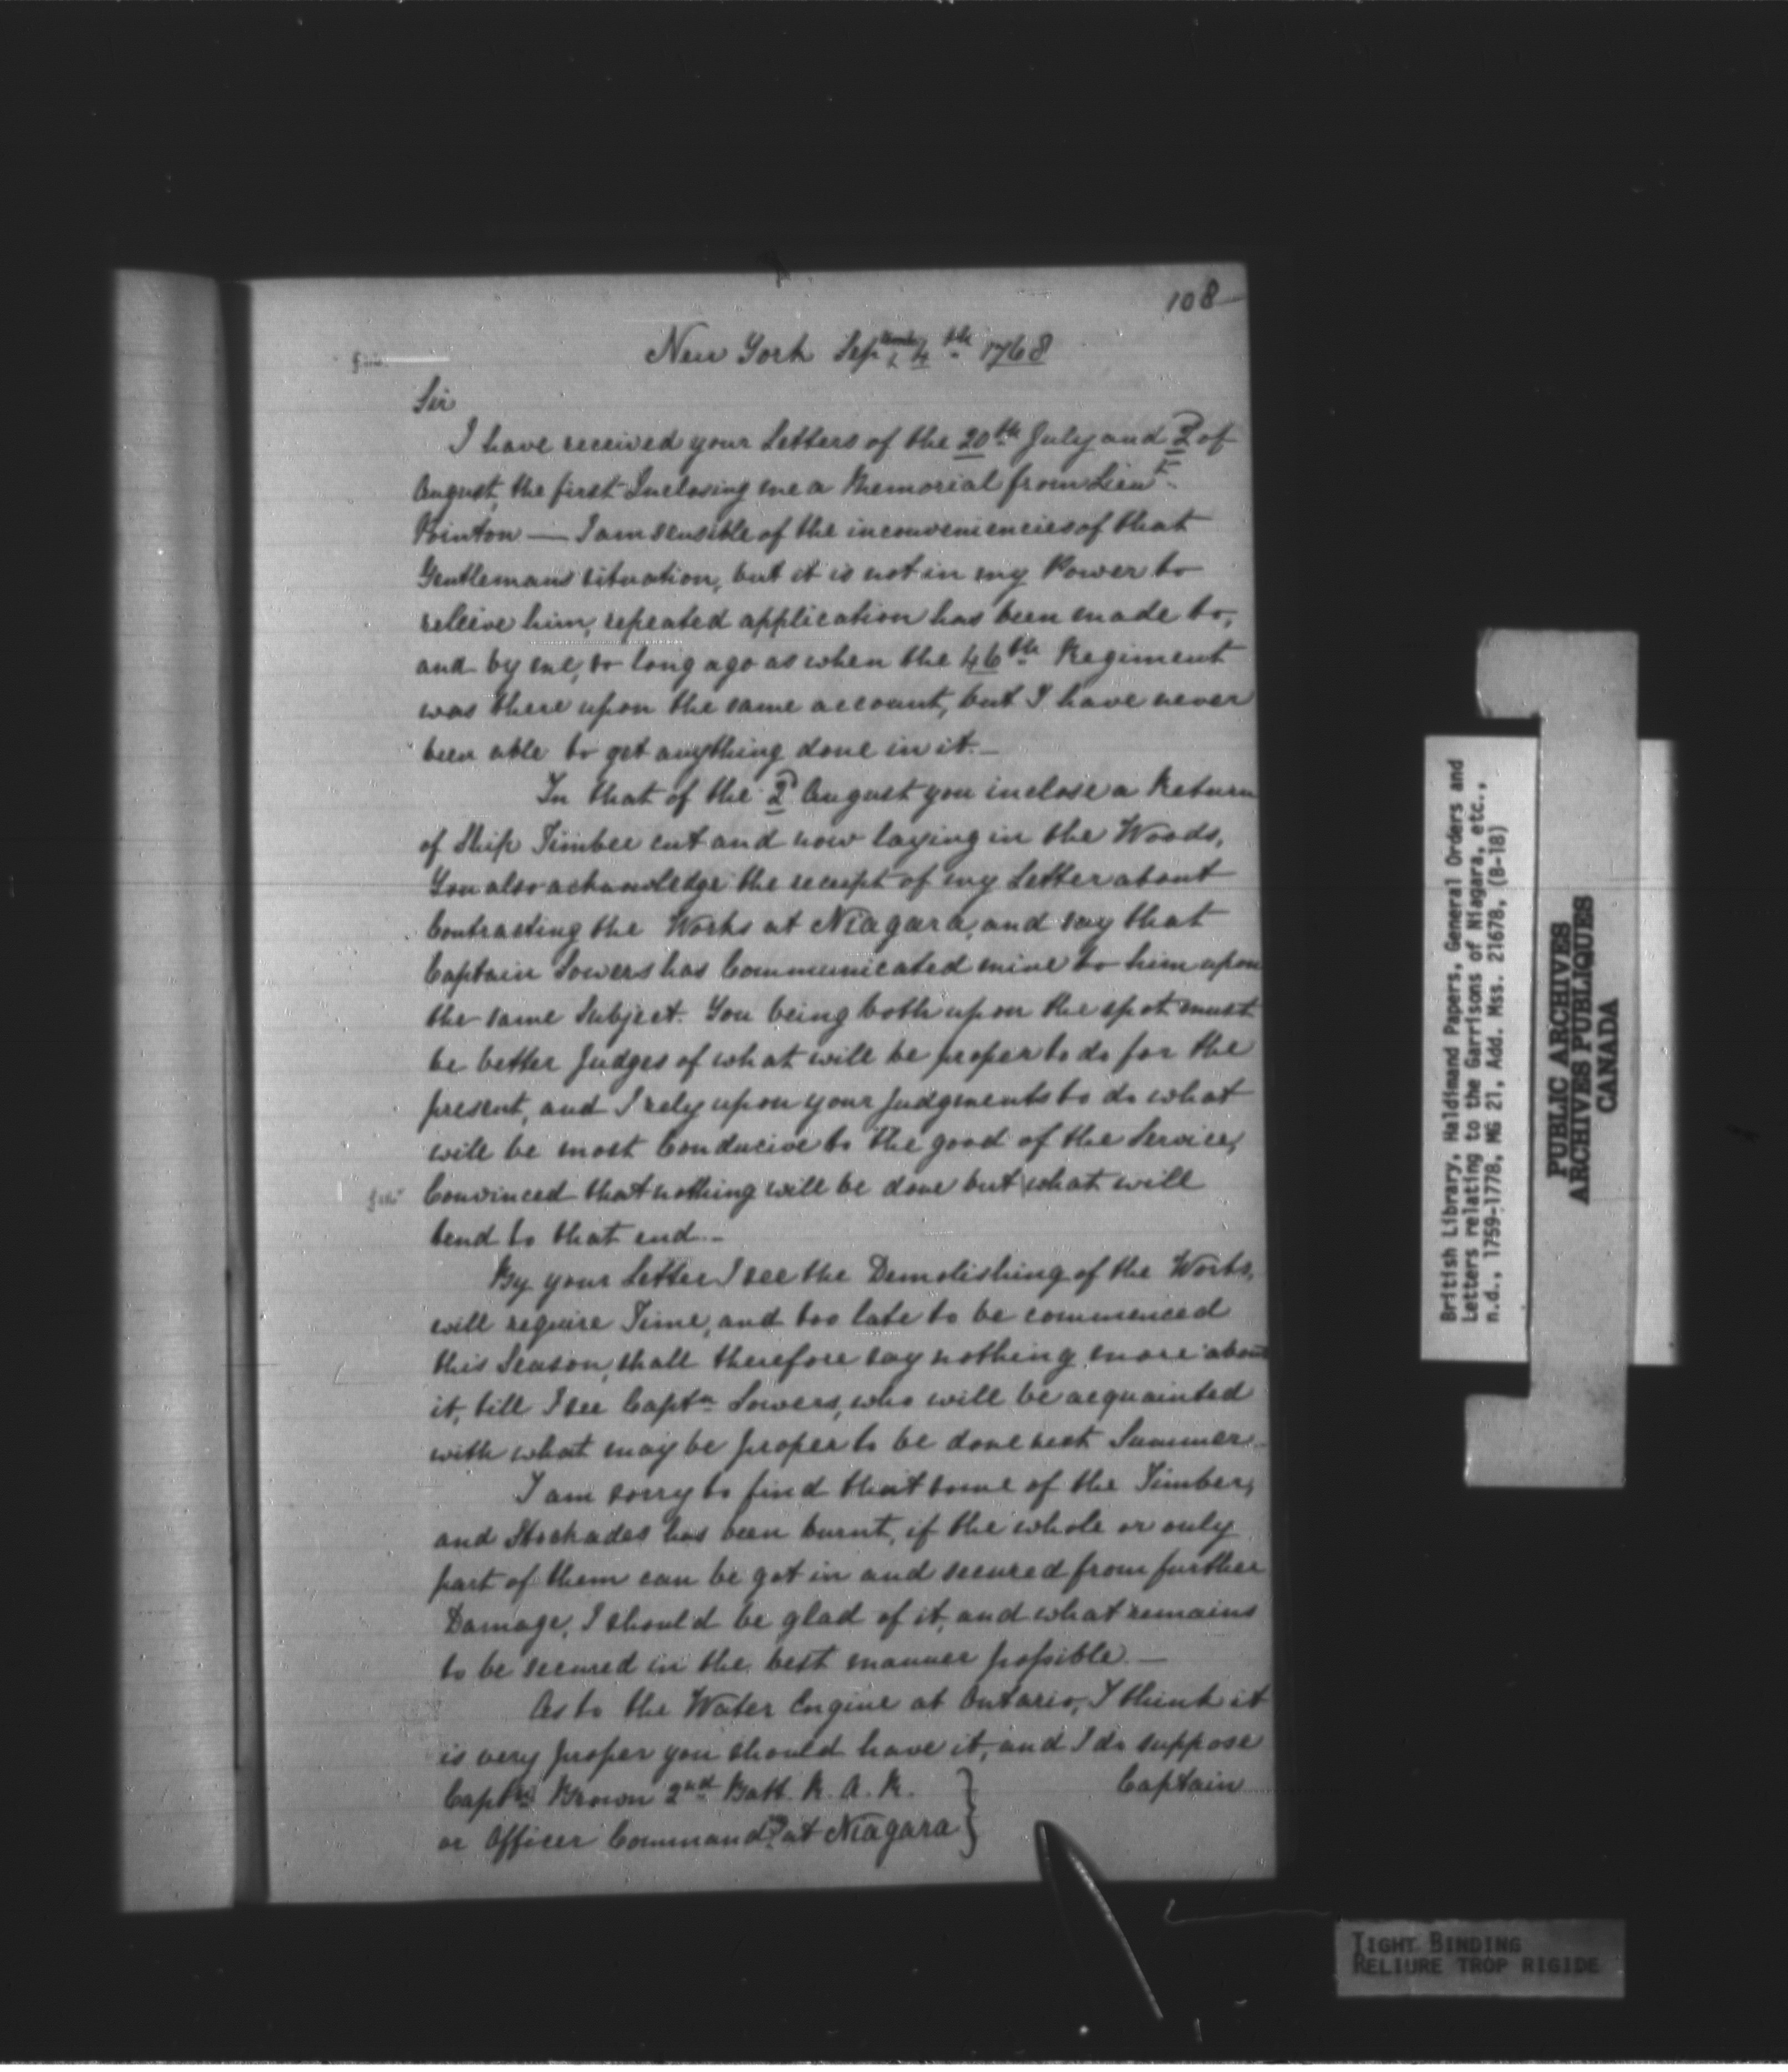 108
New York Sep^tember 4^th 1768
Sir
I have received your Letters of the 20^th July and 2^d of
August, the first Inclosing me a Memorial from Lieu^t
Pointon — I am sensible of the inconveniencies of that
Gentlemans situation, but it is not in my Power to
releive him, repeated application has been made to,
and by me, so long ago as when the 46^th Regiment
was there upon the same account, but I have never
been able to get anything done in it. —
In that of the 2^d August you inclose a Return
of Ship Timber cut and now laying in the Woods,
You also acknowledge the receipt of my Letter about
Contracting the Works at Niagara, and say that
Captain Sowers has Communicated mine to him upon
the same Subject. You being both upon the spot must
be better Judges of what will be proper to do for the
present, and I rely upon your Judgments to do what
will be most Conducive to the good of the Service,
Convinced that nothing will be done but what will
tend to that end. —
By your Letter I see the Demolishing of the Works,
will require Time, and too late to be commenced
this Season, shall therefore say nothing more about
it, till I see Capt^n Sowers, who will be acquainted
with what may be proper to be done next Summer.
I am sorry to find that some of the Timber,
and Stockades has been burnt, if the whole or only
part of them can be got in and secured from further
Damage, I should be glad of it, and what remains
to be secured in the best manner possible. —
As to the Water Engine at Ontario, I think it
is very proper you should have it, and I do suppose
Capt^n Brown 2^nd Batt. R. A. R. } Captain
or Officer Command^g at Niagara }
British Library, Haldimand Papers, General Orders and
Letters relating to the Garrisons of Niagara, etc.,
n.d., 1759-1778, MG 21, Add. Mss. 21678, (B-18)
PUBLIC ARCHIVES
ARCHIVES PUBLIQUES
CANADA
TIGHT BINDING
RELIURE TROP RIGIDE